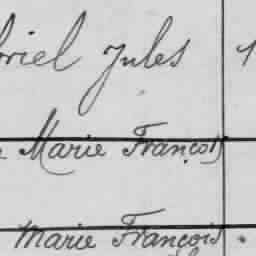 briel Jules 1
e Marie François
Marie François.